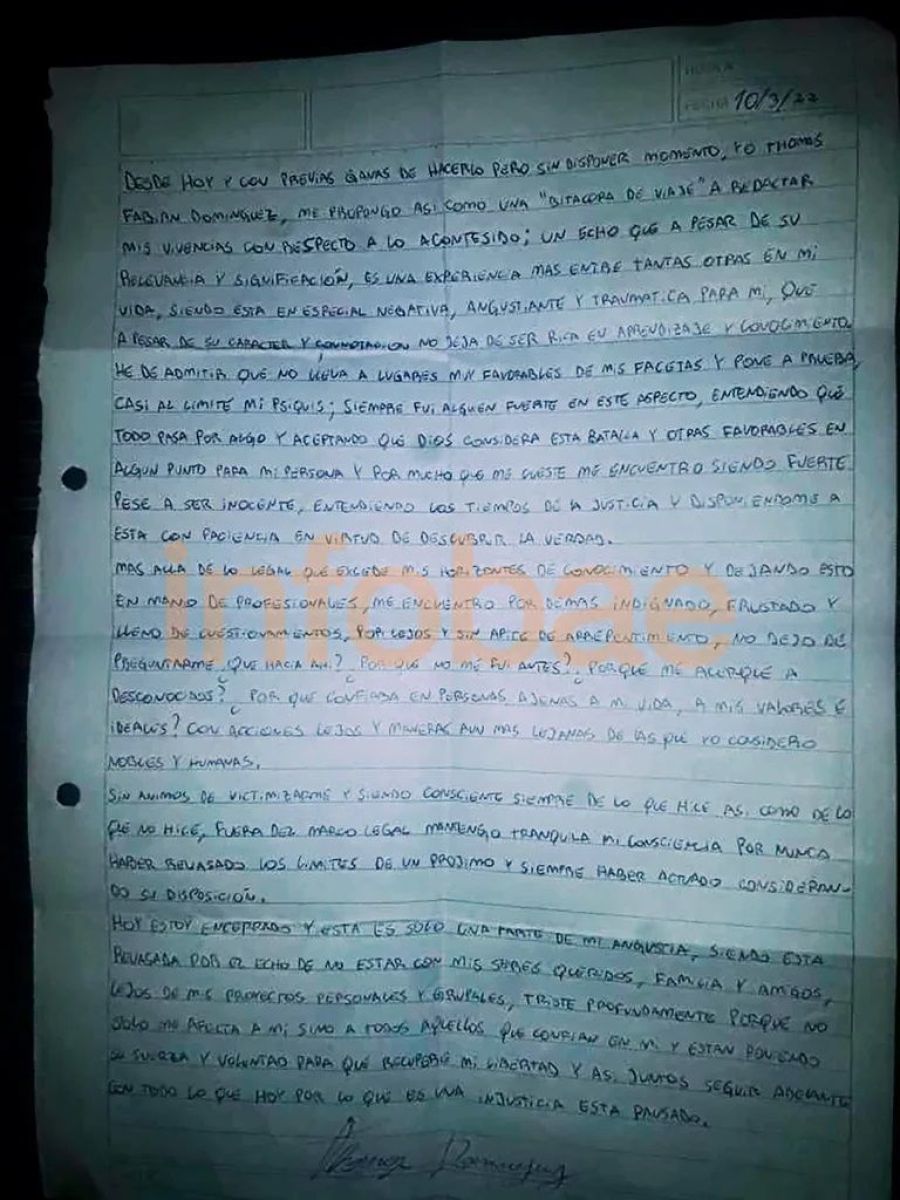 HOJA Nº
FECHA 10/3/22
DESDE HOY Y CON PREVIAS GANAS DE HACERLO PERO SIN DISPONER MOMENTO, YO THOMAS
FABIAN DOMINGUEZ, ME PROPONGO ASI COMO UNA "BITACORA DE VIAJE" A REDACTAR
MIS VIVENCIAS CON RESPECTO A LO ACONTESIDO; UN ECHO QUE A PESAR DE SU
RELEVANCIA Y SIGNIFICACIÓN, ES UNA EXPERIENCIA MAS ENTRE TANTAS OTRAS EN MI
VIDA, SIENDO ESTA EN ESPECIAL NEGATIVA, ANGUSTIANTE Y TRAUMATICA PARA MI, QUE
A PESAR DE SU CARACTER Y CONNOTACION NO DEJA DE SER RICA EN APRENDIZAJE Y CONOCIMIENTO.
HE DE ADMITIR QUE NO LLEVA A LUGARES MUY FAVORABLES DE MIS FACETAS Y PONE A PRUEBA,
CASI AL LIMITE MI PSIQUIS; SIEMPRE FUI ALGUIEN FUERTE EN ESTE ASPECTO, ENTENDIENDO QUE
TODO PASA POR ALGO Y ACEPTANDO QUE DIOS CONSIDERA ESTA BATALLA Y OTRAS FAVORABLES EN
ALGUN PUNTO PARA MI PERSONA Y POR MUCHO QUE ME CUESTE ME ENCUENTRO SIENDO FUERTE
PESE A SER INOCENTE, ENTENDIENDO LOS TIEMPOS DE LA JUSTICIA Y DISPONIENDOME A
ESTA CON PACIENCIA EN VIRTUD DE DESCUBRIR LA VERDAD.
MAS ALLA DE LO LEGAL QUE EXCEDE MIS HORIZONTES DE CONOCIMIENTO Y DEJANDO ESTO
EN MANO DE PROFESIONALES, ME ENCUENTRO POR DEMAS INDIGNADO, FRUSTADO Y
LLENO DE CUESTIONAMIENTOS, POR LEJOS Y SIN APICE DE ARREPENTIMIENTO, NO DEJO DE
PREGUNTARME ¿QUE HACIA AHI? ¿POR QUE NO ME FUI ANTES? ¿PORQUE ME ACERQUE A
DESCONOCIDOS? ¿POR QUE CONFIABA EN PERSONAS AJENAS A MI VIDA, A MIS VALORES E
IDEALES? CON ACCIONES LEJOS Y MANERAS AUN MAS LEJANAS DE LAS QUE YO CONSIDERO
NOBLES Y HUMANAS.
SIN ANIMOS DE VICTIMIZARME Y SIENDO CONSCIENTE SIEMPRE DE LO QUE HICE ASI COMO DE LO
QUE NO HICE, FUERA DEL MARCO LEGAL MANTENGO TRANQUILA MI CONSCIENCIA POR NUNCA
HABER REVASADO LOS LIMITES DE UN PROJIMO Y SIEMPRE HABER ACTUADO CONSIDERAN-
DO SU DISPOSICIÓN.
HOY ESTOY ENCERRADO Y ESTA ES SOLO UNA PARTE DE MI ANGUSTIA, SIENDO ESTA
REVASADA POR EL ECHO DE NO ESTAR CON MIS SERES QUERIDOS, FAMILIA Y AMIGOS,
LEJOS DE MIS PROYECTOS PERSONALES Y GRUPALES, TRISTE PROFUNDAMENTE PORQUE NO
SOLO ME AFECTA A MI SINO A TODOS AQUELLOS QUE CONFIAN EN MI Y ESTAN PONIENDO
SU FUERZA Y VOLUNTAD PARA QUE RECUPERE MI LIBERTAD Y ASI JUNTOS SEGUIR ADELANTE
CON TODO LO QUE HOY POR LO QUE ES UNA INJUSTICIA ESTA PAUSADO.
infobae